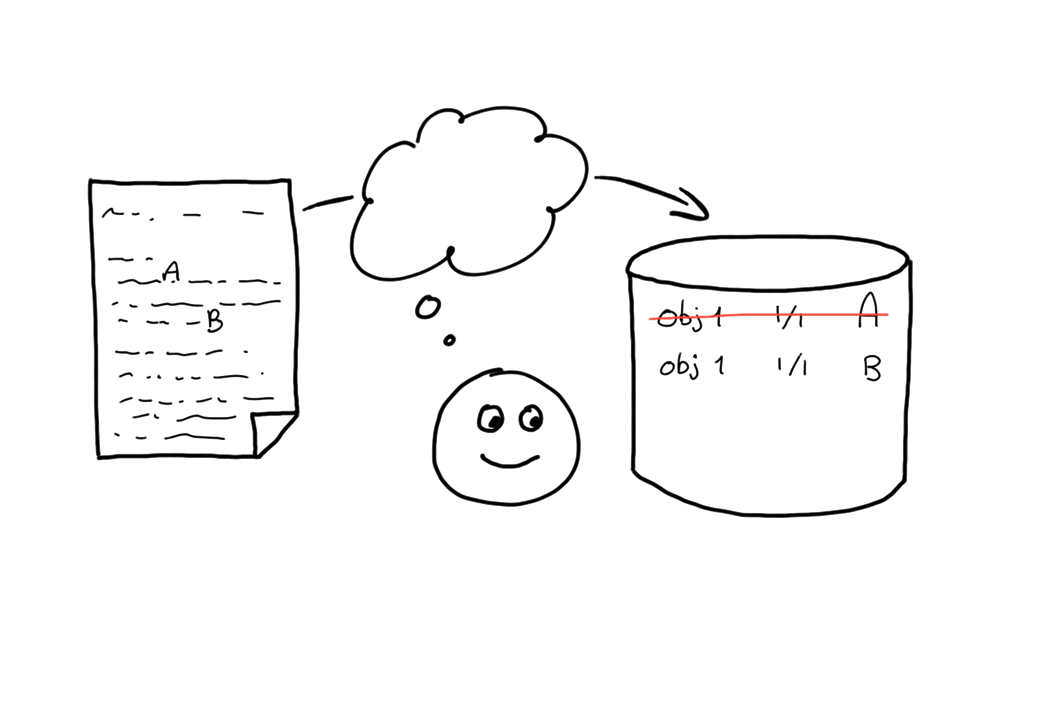 A
B
obj 1 1/1 A
obj 1 1/1 B